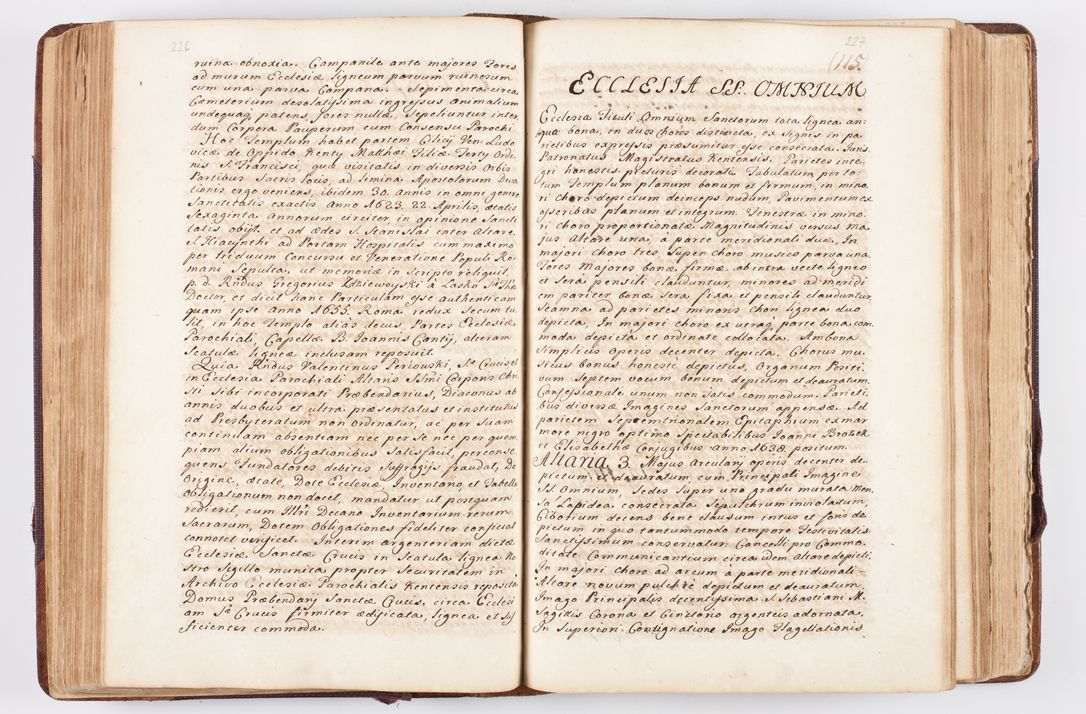 226
ruina obnoxia. Campanile ante majores Fores
ad murum Ecclesiæ ligneum parvum ruinosum
cum una parva Campana. Sepimenta circa
Cæmeterium desolatissima ingressus animalium
undequaq patens, fores nullæ, Sepeliuntur inter
dum Corpora Pauperum cum Consensu Parochi.
Hoc Templum habet partem Cilicij Ven: Ludo
vicæ de Oppido Kenty Matthæi Filiæ Terty Ordi
nis S. Francisci, quæ visitatis in diversis Orbis
Partibus Sacris locis, ad limina Apostolorum Devo
tionis ergo veniens, ibidem 30. annis in omni genere
Sanctitatis exactis Anno 1623. 22. Aprilis, ætatis
Sexaginta annorum circiter in opinione Sancti
tatis obijt, et ad ædes S. Stanislai inter Altare
S. Hiacynthi ad Portam Hospitalis cum maximo
per triduum Concursu et Veneratione Populi Ro
mani Sepulta, ut memoriæ in Scripto reliquit
p. d. Rndus Gregorius Zdziewoyski à Lasko
Doctor, et dicit hanc Particulam esse authenticam
quam ipse anno 1655. Roma redux Secum tu
lit, in hoc Templo aliàs decus, Partes Ecclesiæ
Parochiali Capellæ B. Joannis Cantij, alteram
Scatulæ ligneæ inclusam reposuit.
Quia Rndus Valentinus Periowski, Sæ Crucis et
in Ecclesia Parochiali Altaris Ssmi Corporis Chri
sti Sibi incorporati Præbendarius, Diaconus ab
annis duobus et ultra præsentatus et institutus
ad Presbyteratum non ordinatur, ac per Suam
continuam absentiam nec per Se nec per quem
piam alium obligationibus Satisfacit, perconse
quens Fundatores debitis Suffragijs fraudat, De
Origine, ætate, Dote Ecclesiæ Inventario et Tabella
obligationum non docet, mandatur ut postquam
redierit, cum Illri Decano Inventarium rerum
Sacrarum, Dotem Obligationes fideliter conficiat
connotet verificet. Interim argenteriam dictæ
Ecclesiæ Sanctæ Crucis in Scatula lignea No
stro Sigillo munita propter Securitatem in
Archivo Ecclesiæ Parochialis Kentensis reposita
Domus Præbendary Sanctæ Crucis, circa Ecclesi
am Sæ Crucis firmiter ædificata, lignea et Suf
ficienter commoda.
227
(115.
ECCLESIA SS. OMNIUM
Ecclesia Tituli Omnium Sanctorum tota lignea an
qua bona, in duos choros distincta, ex Signis in pa
rietibus expressis præsumitur esse consecrata. Juris
Patronatus Magistratus Kentensis. Parietes inte
gri honestis picturis decorati. Tabulatum per to
tum Templum planum bonum et firmum, in mino
ri choro depictum deinceps nudum, Pavimentum ex
asseribus planum et integrum. Fenestræ in mino
ri choro proportionatæ Magnitudinis versus ma
jus Altare una, à parte meridionali duæ. In
majori choro tres, Super choro musico parva una.
Fores Majores bonæ firmæ ab intra vecte ligneo
et sera pensili clauduntur, minores ad meridi
em pariter bonæ sera fixa et pensili clauduntur,
Scamna ad parietes minoris chori lignea duo
depicta, In majori choro ex utraq parte bona com
moda depicta et ordinate collocata. Ambona
Simplicis operis decenter depicta. Chorus mu
sicus bonus honeste depictus, Organum Positi
vum Septem vocum bonum depictum et deauratum.
Confessionale unum non satis commodum. Parieti
bus diversæ Imagines Sanctorum appensæ. Ad
parietem Septemtrionalem Epitaphium ex mar
more nigro optimo Spectabilibus Joanni Brožek
et Elisabethæ Conjugibus anno 1638 positum.
Altaria 3. Majus Arcularij operis decenter de
pictum et deauratum cum Principali Imagine
SS. Omnium, Sedes Super uno gradu murata Men
sa Lapidea consecrata Sepulchrum inviolatum,
Ciborium decens bene clausum intus et foris de
pictum in quo tantummodo tempore Festivitatis
Sanctissimum conservatur. Cancelli pro Commo
ditate Communicantium circa idem altare depicti.
In majori choro ad arcum à parte meridionali
Altare novum pulchre depictum et deauratum,
Imago Principalis decentissima S. Sebastiani M.
Sagittis Corona et Cinctorio argenteis adornata.
In Superiori Contignatione Imago Flagellationis